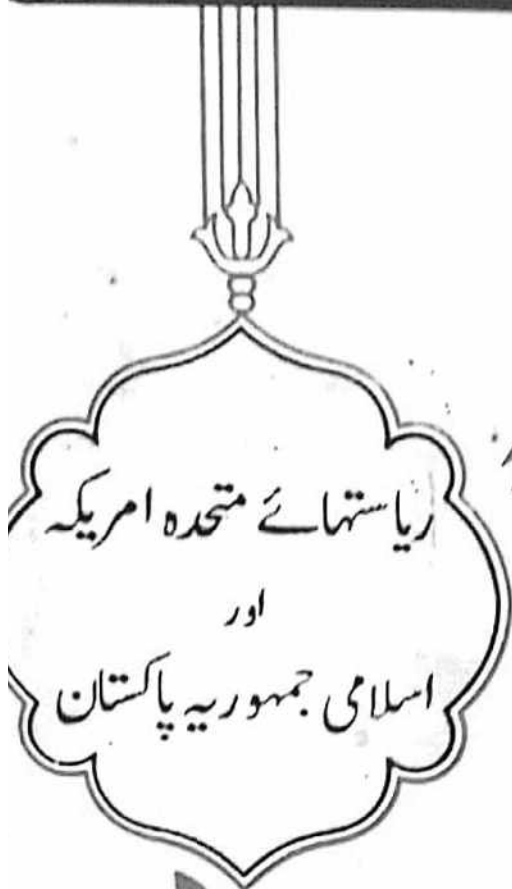 ریاستہائے متحدہ امریکہ
اور
اسلامی جمہوریہ پاکستان